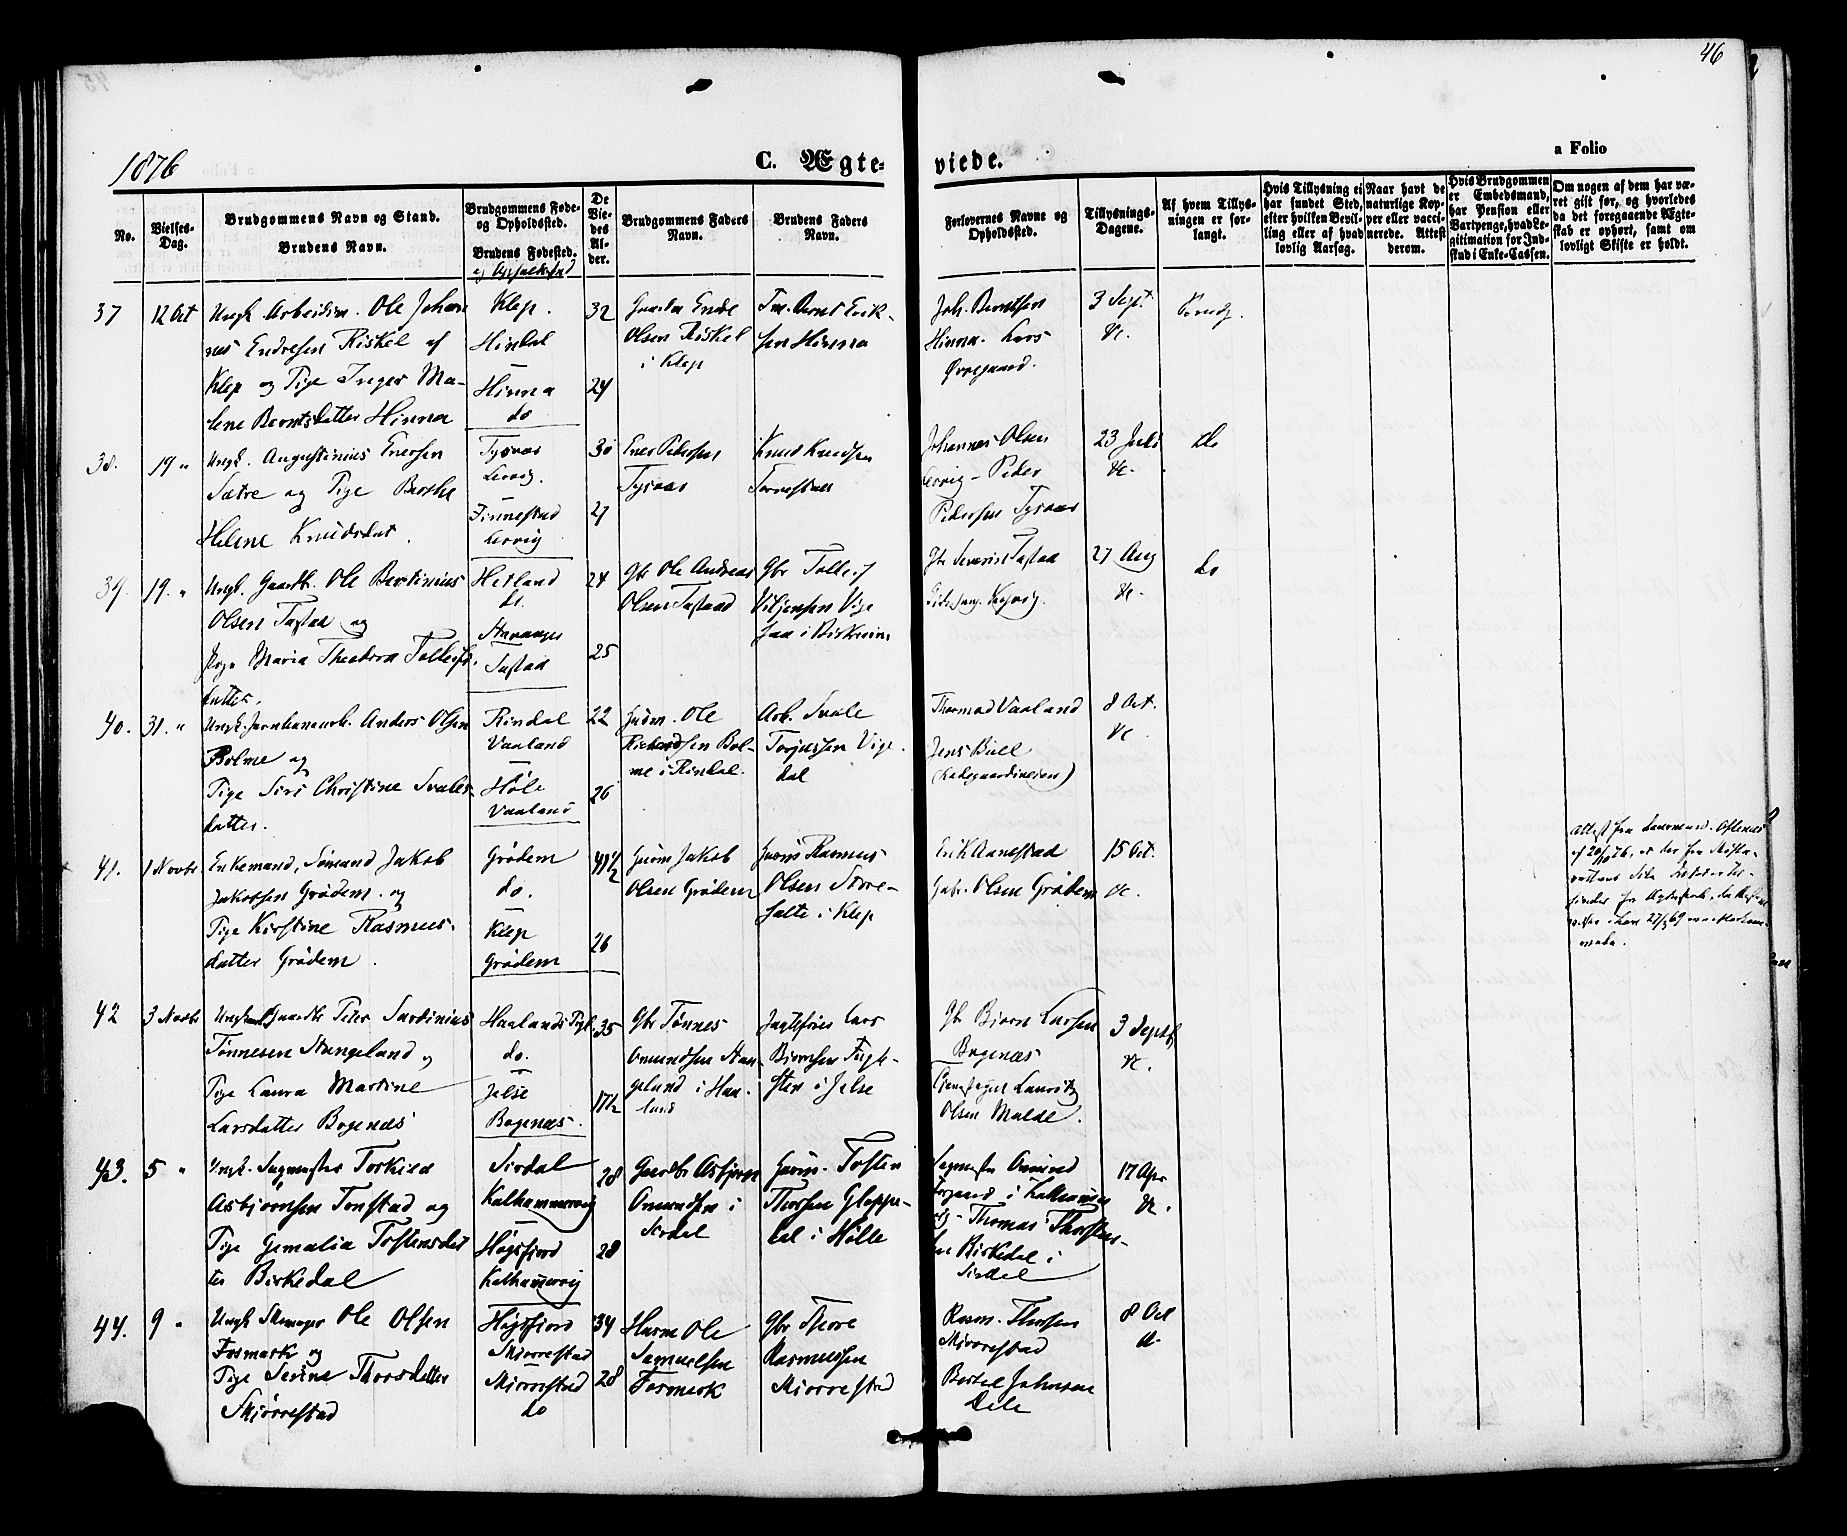 46
1876
C. Ægteviede.
a Folio
No.
Vielses-Dag.
Brudgommens Navn og Stand.
Brudens Navn.
Brudgommens Føde- og Opholdssted.
Brudens Fødested.
De Viedes Alder.
Brudgommens Faders Navn.
Brudens Faders Navn.
Forlovernes Navne og Opholdssted.
Tillysnings-Dagene.
Af hvem Tillysningen er forlangt.
Hvis Tillysning ei har fundet Sted, efter hvilken Bevilling eller af hvad lovlig Aarsag.
Naar havt de naturlige Kopper eller vaccinerede. Attest derom.
Hvis Brudgommen er Embedsmand, har Pension eller Vartpenge, hvad Legitimation for Indskud i Enke-Cassen.
Om nogen af dem har været gift før, og hvorledes da det foregaaende Ægteskab er ophørt, samt om lovligt Skifte er holdt.
37
12 Oct
Ungk Arbeidsm. Ole Johan
nes Endresen Riskel af
Klep og Pige Inger Ma-
lene Berntsdatter Hinna
Klep.
Hindal
Hinna
do
32
24
Olsen Riskel
i Klep
sen Hinna
Joh. Berntsen
Hinna. Lars
3 Sept.
&c.
38.
19 "
Ungk. Augustinius Enersen
Sætre og Pige Berthe
Helene Knudsdat.
Tysvær
Lervig.
Finnestad
Lervig
30
27
Ener Pedersen
Tysvær
Knud Knudsen
Torvestad
Johannes Olsen
Lervig - Peder
Pedersen Tysvær
23 Juli
&c.
do
39.
19. "
Ungk. Gaardb. Ole Bertinius
Olsen Tastad og
Pige Maria Theodora Tolleifs
datter.
Hetland
do.
Stavanger
Tastad
24
25
Gbr Ole Andreas
Olsen Tastad
Gbr Tolleif
27 Aug
&c.
do
40.
31. "
Ungk. Jernbanearb. Anders Olsen
Bolme og
Pige Siri Christine Svales-
datter.
Rindal
Vaaland
Høle
Vaaland
22
26
Husm. Ole
Richardsen Bol-
me i Rindal.
Arb. Svale
Torjussen Vige-
dal
Thormod Vaaland
Jens Bull
(Ladegaardsveien)
8 Oct.
&c.
41.
1 Novbr
Enkemand, Sømand Jakob
Jakobsen Grødem. og
Pige Kirstine Rasmus-
datter Grødem.
Grødem
do.
Klep
Grødem
41½
26
Husm Jakob
Olsen Grødem
Husm Rasmus
Olsen Store-
Salte i Klep
Erik Aanestad
Gabr. Olsen Grødem
15 Oct.
&c.
Attest fra
42
3 Novbr
Ungkarl Gaardbr Peter Sardinius
Tønnesen Stangeland og
Pige Laura Martine
Larsdatter Bogenæs
Haalands Pgd.
do.
Jelse
Bogenæs.
35
17½
Gbr Tønnes
Omundsen Stan-
geland i Haa-
land
Jagtefører Lars
Bjørnsen Fugle-
sten i Jelse
Gbr Bjørn Larsen
Bogenæs
Lauritz
Olsen Malde.
3 Septb
&c.
43.
5 "
Ungk. Sagmester Torkild
Asbjørnsen Tonstad og
Pige Gemalia Tostensdat
ter Birkedal
Sirdal
Kalhammervig
Høgsfjord
Kalhammervig
28
28
Gaardbr Asbjørn
Omundsen i
Sirdal
Husm. Tosten
Thorsen Gloppe-
dal i Hølle
Sagmester Omund
i Kalhammer
vig - Thomas Thorsten-
sen Birkedal i
Sirdal
17 Apr
&c.
44.
9 "
Ungk Skomager Ole Olsen
Fosmark og
Pige Serine Thorsdatter
Skjørrestad
Høgsfjord
Skjørrestad
Skjørrestad
do
34
28
Husm Ole
Samuelsen
Fosmark
Gbr Thore
Rasmussen
Skjørrestad
Rasm. Thorsen
Skjørrestad
Bertel Johnsen
8 Oct
&c.